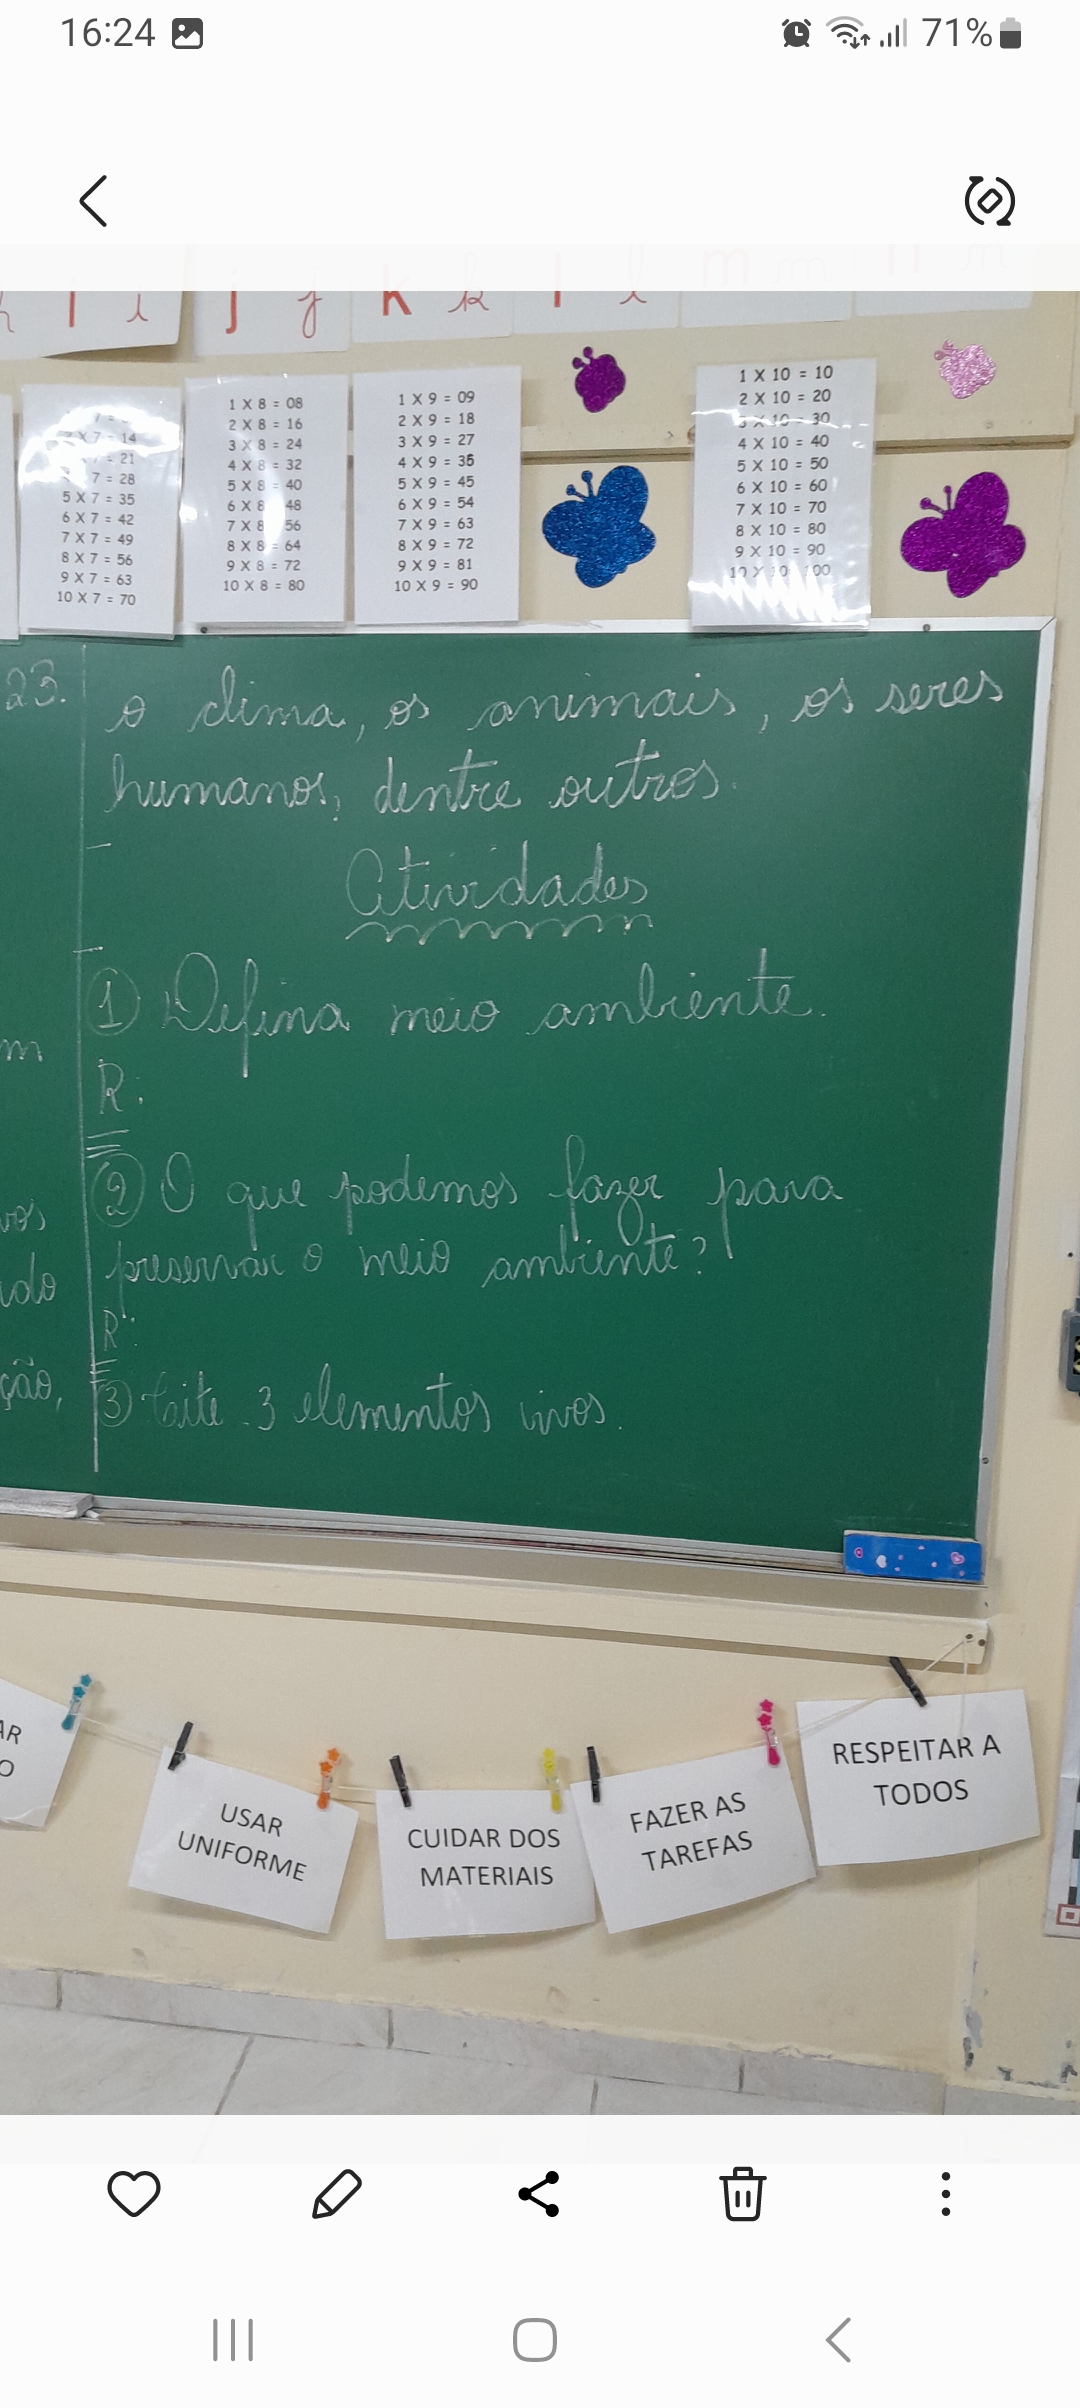 16:24
71%
i i
j j
k k
l l
m m
n n
7 =
X 7 = 14
7 = 21
7 = 28
5 X 7 = 35
6 X 7 = 42
7 X 7 = 49
8 X 7 = 56
9 X 7 = 63
10 X 7 = 70
1 X 8 = 08
2 X 8 = 16
3 X 8 = 24
4 X 8 = 32
5 X 8 = 40
6 X 8 48
7 X 8 56
8 X 8 = 64
9 X 8 = 72
10 X 8 = 80
1 X 9 = 09
2 X 9 = 18
3 X 9 = 27
4 X 9 = 36
5 X 9 = 45
6 X 9 = 54
7 X 9 = 63
8 X 9 = 72
9 X 9 = 81
10 X 9 = 90
1 X 10 = 10
2 X 10 = 20
3 X 10 = 30
4 X 10 = 40
5 X 10 = 50
6 X 10 = 60
7 X 10 = 70
8 X 10 = 80
9 X 10 = 90
10 X 10 100
23.
m
vos
do
ção,
o clima, os animais, os seres
humanos, dentre outros.
Atividades
1 Defina meio ambiente.
R:
2 O que podemos fazer para
preservar o meio ambiente?
R:
3 Cite 3 elementos vivos.
AR
O
USAR
UNIFORME
CUIDAR DOS
MATERIAIS
FAZER AS
TAREFAS
RESPEITAR A
TODOS